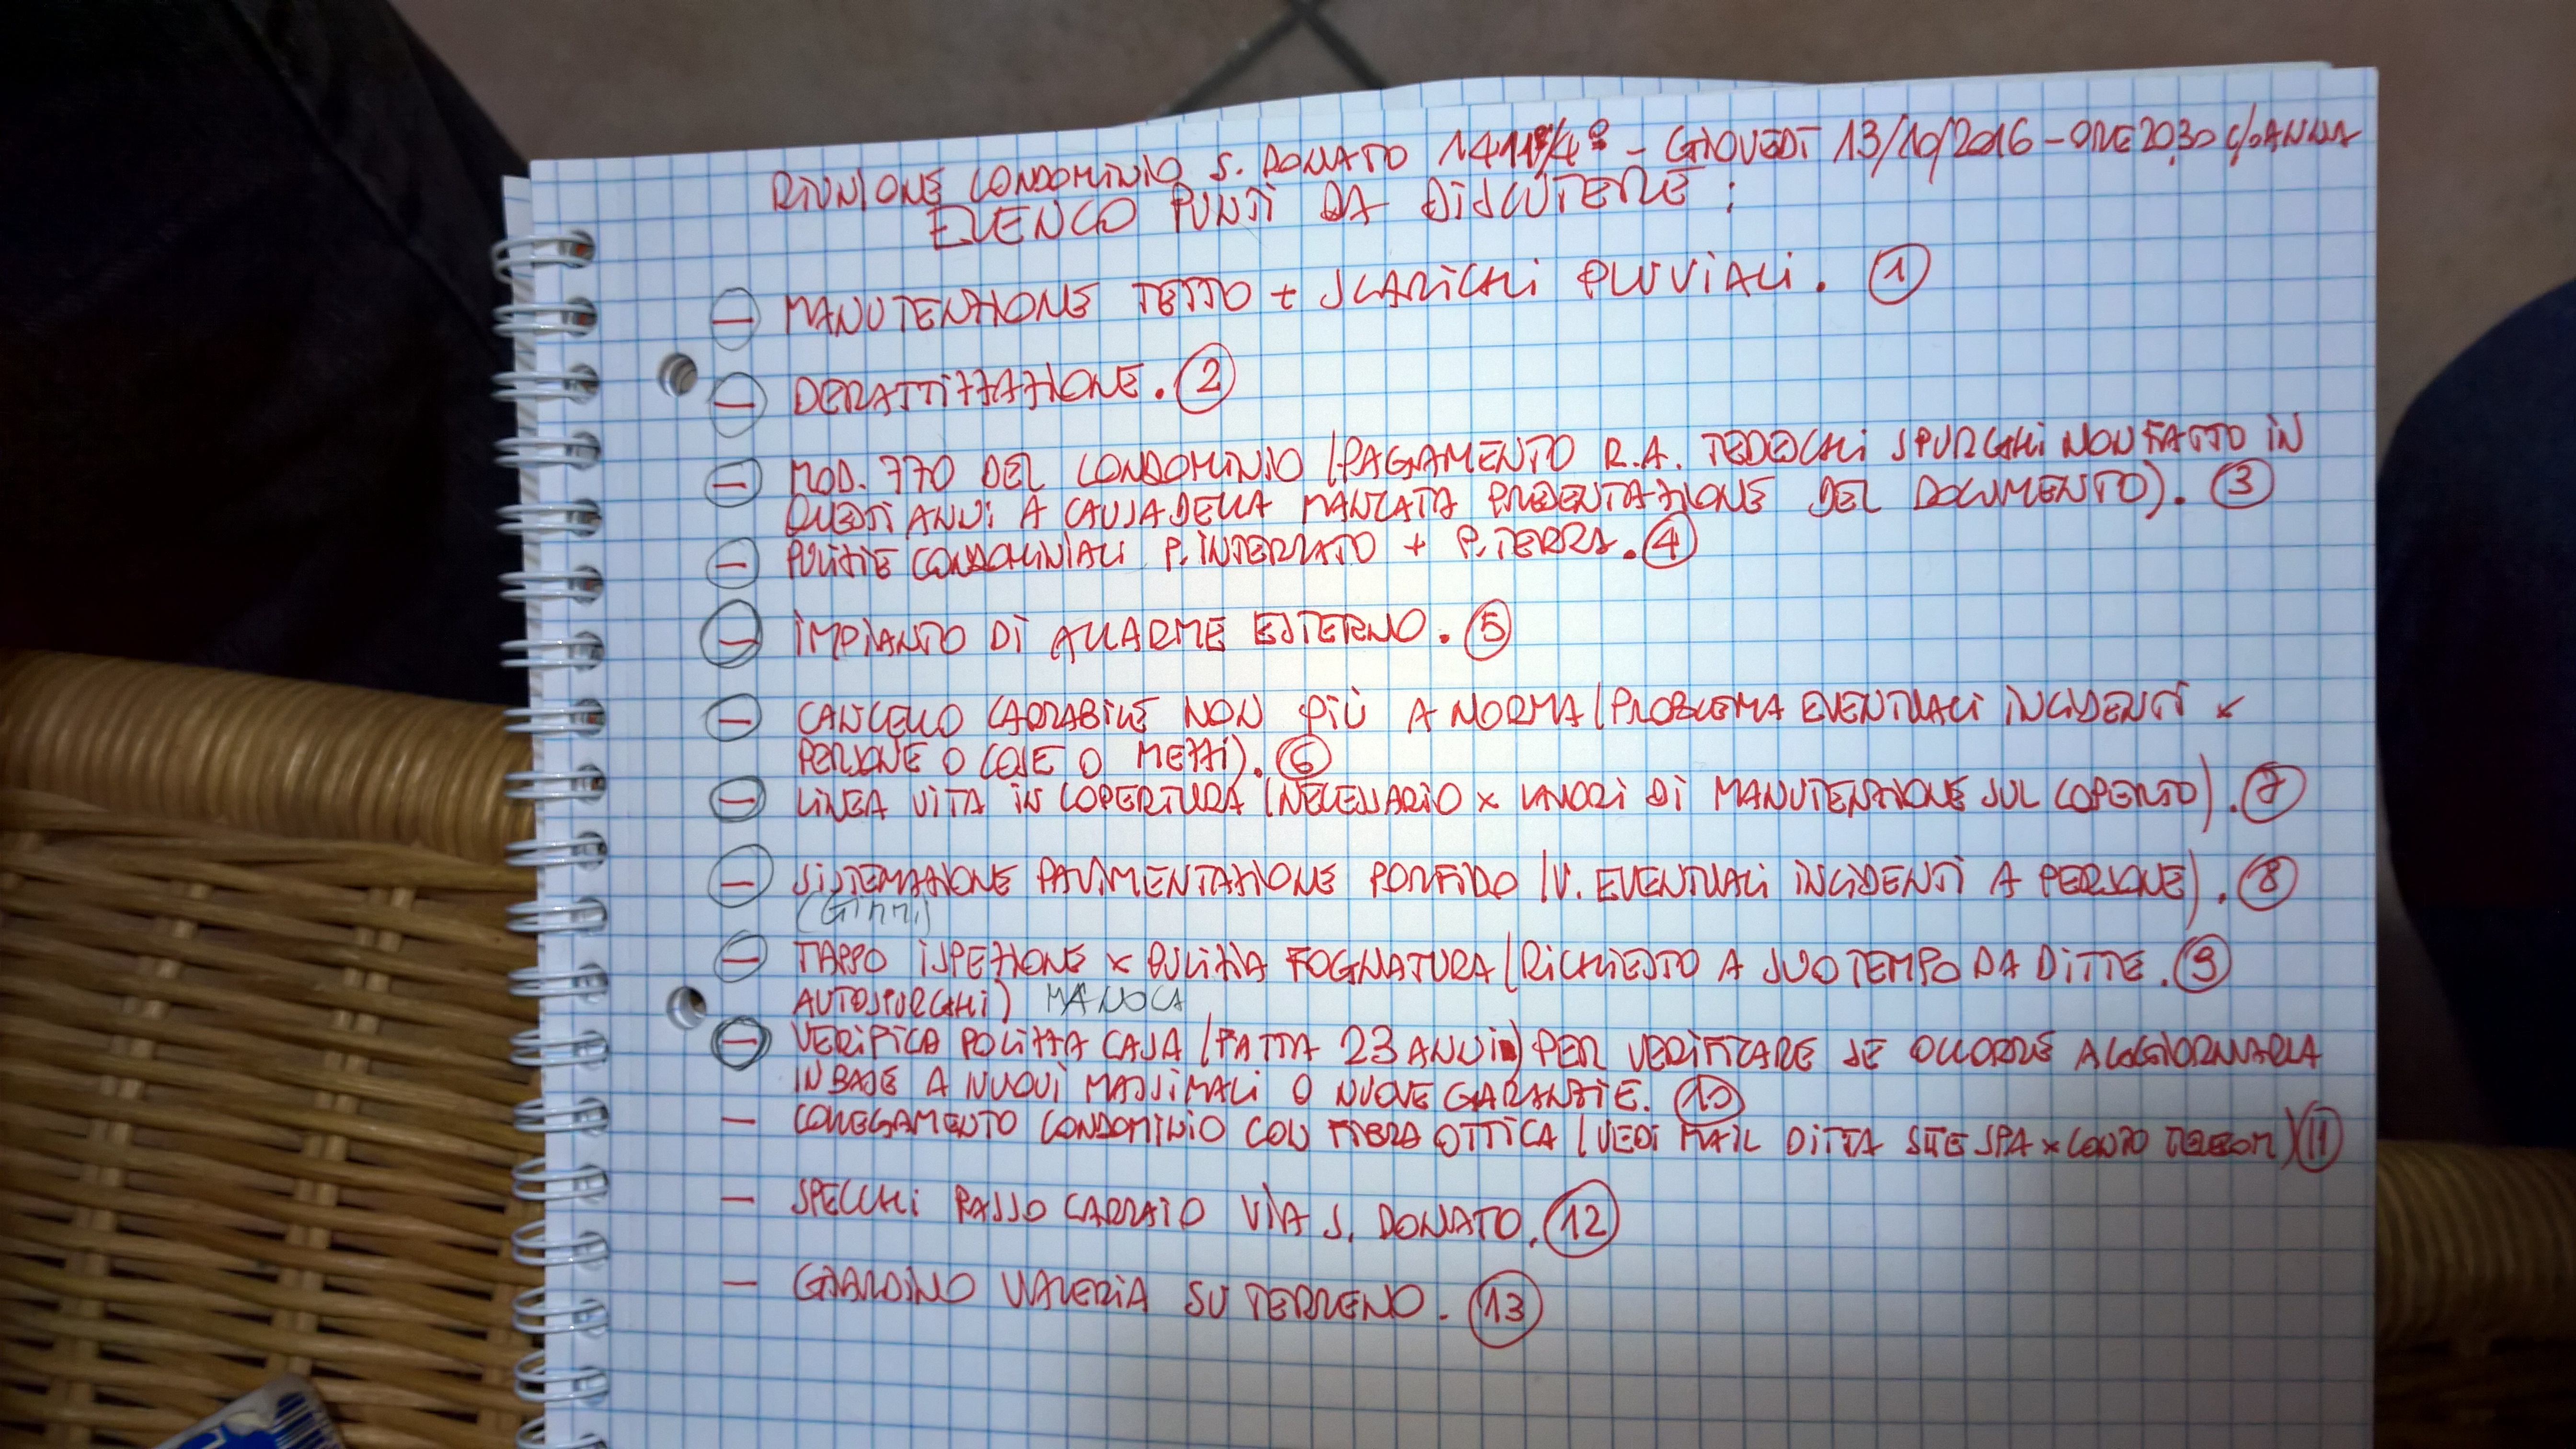 RIUNIONE CONDOMINIO S. DONATO - GIOVEDÌ 13/10/2016 - ORE 20,30 C/O ANNA
ELENCO PUNTI DA DISCUTERE:
- MANUTENZIONE TETTO + SCARICHI PLUVIALI. 1
- DERATTIZZAZIONE. 2
- MOD. 770 DEL CONDOMINIO (PAGAMENTO R.A. TEDESCHI SPURGHI NON FATTO IN
QUESTI ANNI A CAUSA DELLA MANCATA PRESENTAZIONE DEL DOCUMENTO). 3
- PULIZIE CONDOMINIALI P. INTERRATO + P. TERRA. 4
- IMPIANTO DI ALLARME ESTERNO. 5
- CANCELLO CARRABILE NON PIÙ A NORMA (PROBLEMA EVENTUALI INCIDENTI x
PERSONE O COSE O MEZZI). 6
- LINEA VITA IN COPERTURA (NECESSARIO x LAVORI DI MANUTENZIONE SUL COPERTO). 7
- SISTEMAZIONE PAVIMENTAZIONE PORFIDO (V. EVENTUALI INCIDENTI A PERSONE). 8
(Ginni)
- TAPPO ISPEZIONE x PULIZIA FOGNATURA (RICHIESTO A SUO TEMPO DA DITTE. 9
AUTOSPURGHI) MANOCA
- VERIFICA POLIZZA CASA (FATTA 23 ANNI) PER VERIFICARE SE OCCORRE AGGIORNARLA
IN BASE A NUOVI MASSIMALI O NUOVE GARANZIE. 10
- COLLEGAMENTO CONDOMINIO CON FIBRA OTTICA (VEDI MAIL DITTA SITE SPA x CONTO TELECOM) 11
- SPECCHI PASSO CARRAIO VIA S. DONATO. 12
- GIARDINO VALERIA SU TERRENO. 13